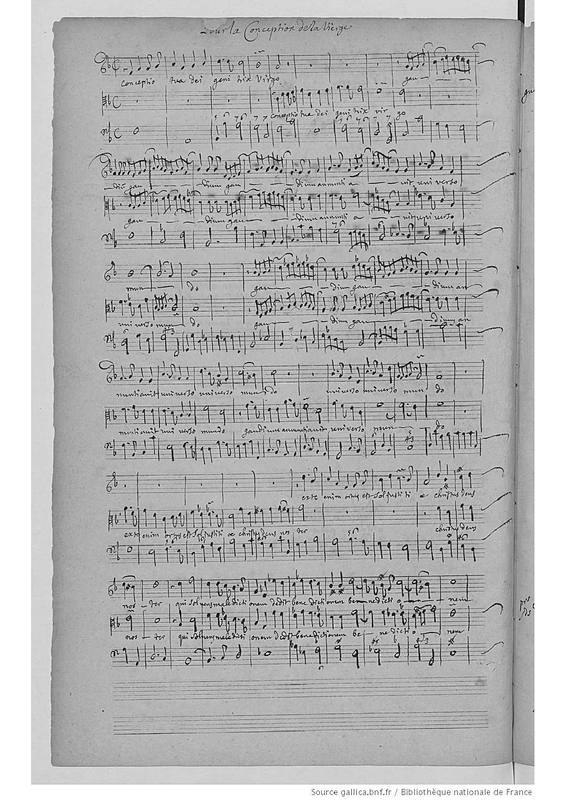 Pour la Conception de la Vierge
conceptio tua dei geni trix virgo gau
conceptio tua dei geni trix vir go
dium gau dium gau dium annunti a vit uni verso
gau dium gau dium annunti a vit uni verso
mun do gau dium gau dium an
uni verso mun do gau dium gau dium an
nuntiavit uni verso universo mun do universo universo mun do
nuntiavit uni verso mundo gaudium annuntiavit universo mun do
exte enim ortus est sol justiti æ christus deus
exte enim ortus est sol justiti æ christus deus nos ter christus deus
nos ter qui solvens maledicti onem dedit bene dictionem benedicti o nem
nos ter qui solvens maledicti onem dedit benedictionem be nedicti o nem
Source gallica.bnf.fr / Bibliothèque nationale de France